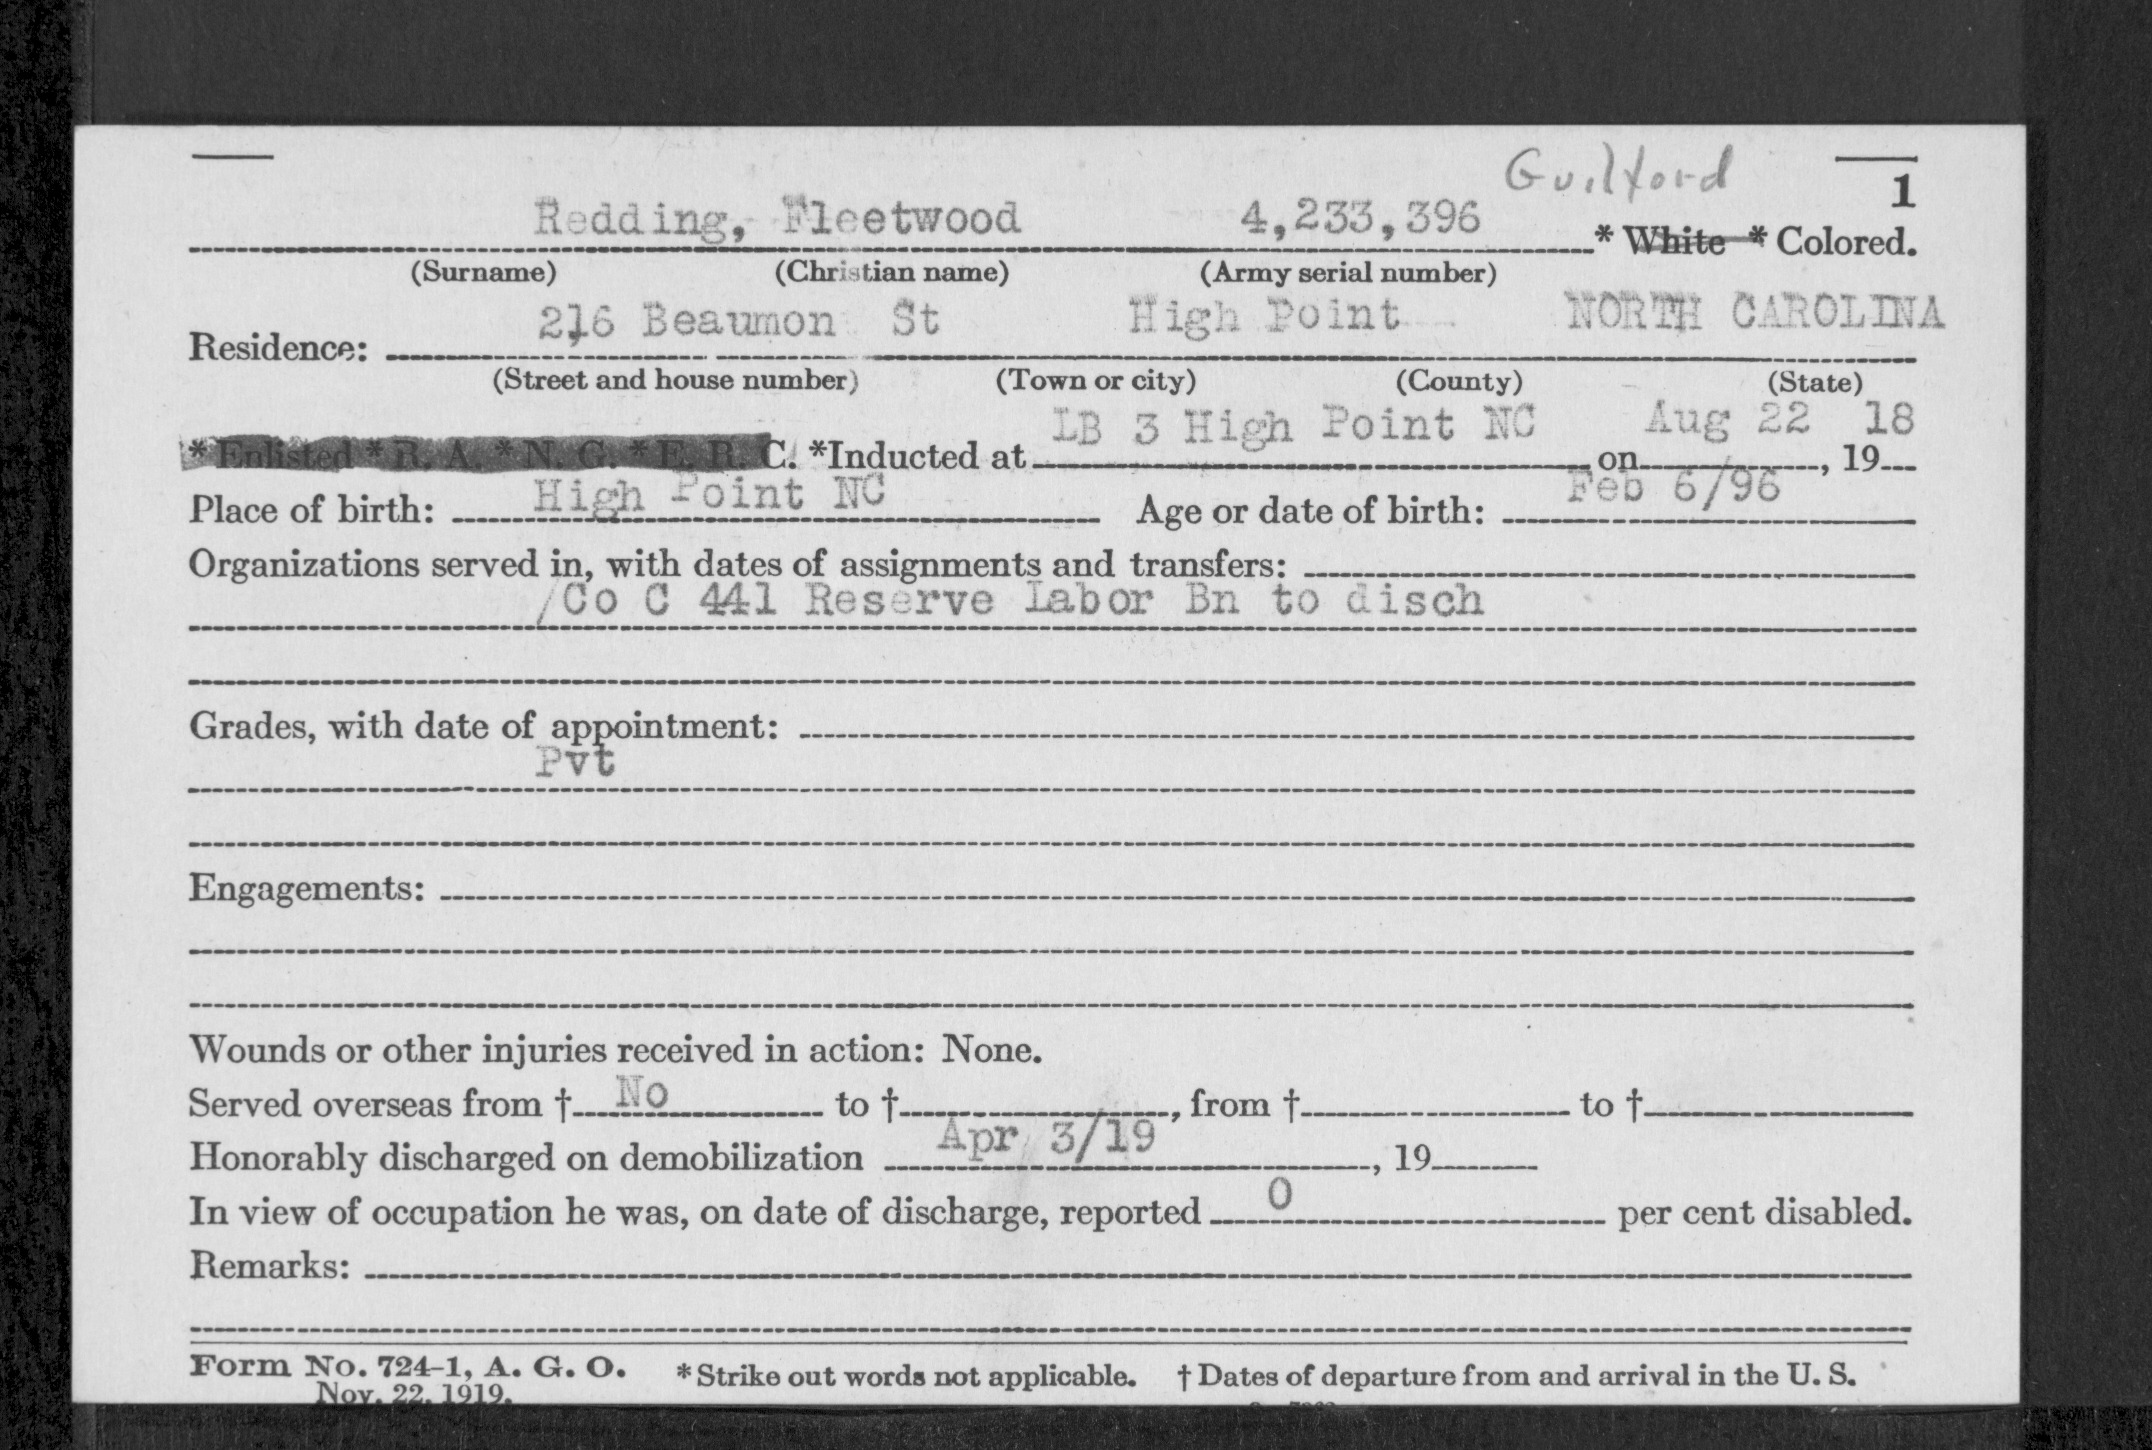 Guilford
1
Redding, Fleetwood 4,233,396 * White * Colored.
(Surname) (Christian name) (Army serial number)
216 Beaumon St High Point NORTH CAROLINA
Residence:
(Street and house number) (Town or city) (County) (State)
LB 3 High Point NC Aug 22 18
* Enlisted * R. A. * N. G. * E. R. C. *Inducted at on , 19
High Point NC Feb 6/96
Place of birth: Age or date of birth:
Organizations served in, with dates of assignments and transfers:
/Co C 441 Reserve Labor Bn to disch
Grades, with date of appointment:
Pvt
Engagements:
Wounds or other injuries received in action: None.
Served overseas from † No to † , from † to †
Apr 3/19
Honorably discharged on demobilization , 19
In view of occupation he was, on date of discharge, reported 0 per cent disabled.
Remarks:
Form No. 724-1, A. G. O. * Strike out words not applicable. † Dates of departure from and arrival in the U. S.
Nov. 22, 1919.